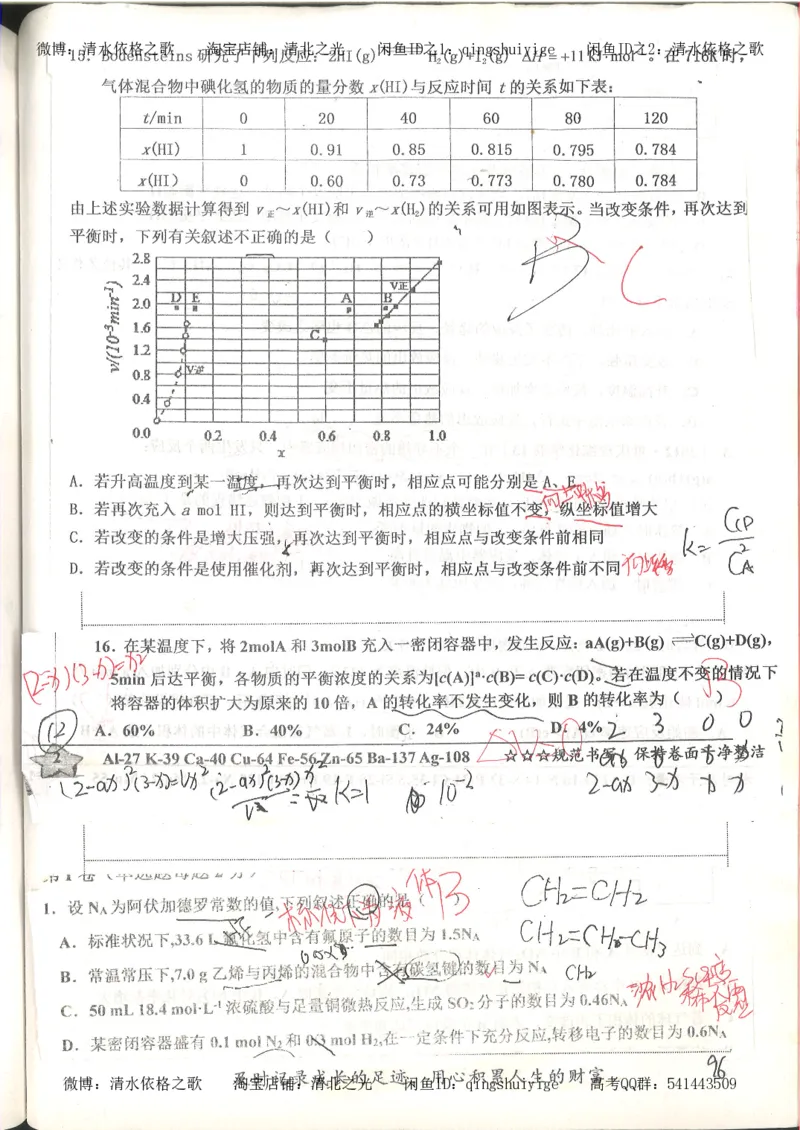 微博：清水依格之歌 淘宝店铺：清北之光 闲鱼ID之1：qingshuiyige 闲鱼ID之2：清水依格之歌
15．Bodensteins研究了下列反应：2HI(g) H₂(g)+I₂(g) ΔH=+11kJ·mol⁻¹。在716K时，
气体混合物中碘化氢的物质的量分数 x(HI)与反应时间 t的关系如下表：
t/min 0 20 40 60 80 120
x(HI) 1 0.91 0.85 0.815 0.795 0.784
x(HI) 0 0.60 0.73 0.773 0.780 0.784
由上述实验数据计算得到 v正～x(HI)和 v逆～x(H₂)的关系可用如图表示。当改变条件，再次达到
平衡时，下列有关叙述不正确的是（ ）
B
C
2.8
2.4
2.0
1.6
1.2
0.8
0.4
0.0
0.2 0.4 0.6 0.8 1.0
v/(10⁻³min⁻¹)
x
D E A B
C
v正
v逆
A．若升高温度到某一温度，再次达到平衡时，相应点可能分别是 A、E
B．若再次充入 a mol HI，则达到平衡时，相应点的横坐标值不变，纵坐标值增大
C．若改变的条件是增大压强，再次达到平衡时，相应点与改变条件前相同
D．若改变的条件是使用催化剂，再次达到平衡时，相应点与改变条件前不同
16．在某温度下，将2molA 和 3molB 充入一密闭容器中，发生反应：aA(g)+B(g) ⇌C(g)+D(g)，
5min 后达平衡，各物质的平衡浓度的关系为[c(A)]ᵃ·c(B)= c(C)·c(D)。若在温度不变的情况下
将容器的体积扩大为原来的 10 倍，A 的转化率不发生变化，则 B 的转化率为（ ）
A．60% B．40% C．24% D．4%
2 3 0 0
2 Al-27 K-39 Ca-40 Cu-64 Fe-56 Zn-65 Ba-137 Ag-108 ☆☆☆规范书写 保持卷面干净整洁
K=1
10⁻²
2-ax 3-x x x
1．设 NA为阿伏加德罗常数的值,下列叙述正确的是（ ）
A．标准状况下,33.6 L 氟化氢中含有氟原子的数目为 1.5NA
B．常温常压下,7.0 g 乙烯与丙烯的混合物中含有碳氢键的数目为 NA
C．50 mL 18.4 mol·L⁻¹浓硫酸与足量铜微热反应,生成 SO₂ 分子的数目为 0.46NA
D．某密闭容器盛有 0.1 mol N₂和 0.3 mol H₂,在一定条件下充分反应,转移电子的数目为 0.6NA
CH₂=CH₂
CH₂=CH-CH₃
CH₂
96
及时记录成长的足迹 用心积累人生的财富
微博：清水依格之歌 淘宝店铺：清北之光 闲鱼ID：qingshuiyige 高考QQ群：541443509